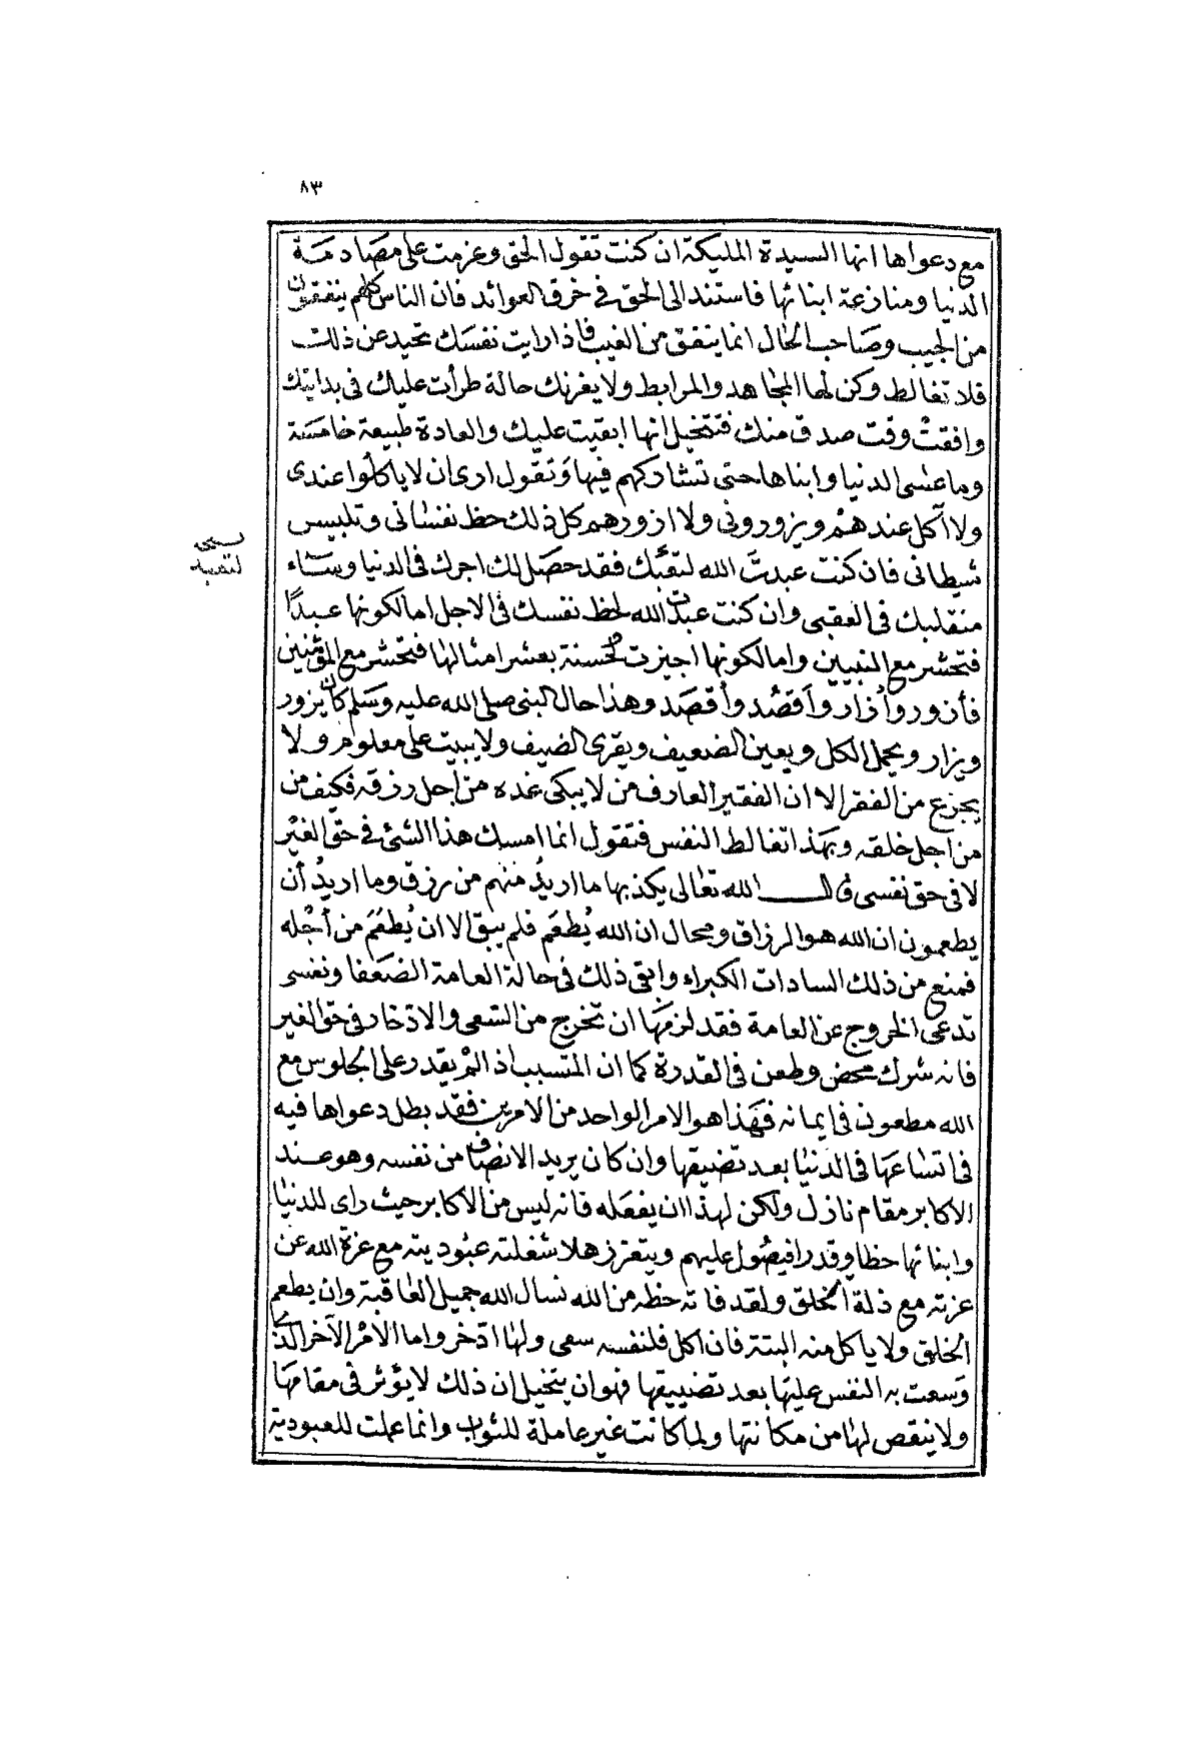 ٨٣
مع دعواها انها السيدة المليكة ان كنت تقول الحق وعزمت على مصادمة
الدنيا ومنازعة ابنائها فاستند الى الحق في خرق العوائد فان الناس كلهم ينفقون
من الجيب وصاحب الحال انما ينفق من الغيب فاذا رايت نفسك تحيد عن ذلك
فلا تغالط وكن لها المجاهد والمرابط ولا يغرنك حالة طرأت عليك فى بدايتك
وافقت وقت صدق منك فتتخيل انها ابقيت عليك والعادة طبيعة خامسة
وما عسى الدنيا وابناها حتى تشاركهم فيها وتقول ارى ان لا ياكلوا عندى
ولا آكل عندهم ويزورونى ولا ازورهم كل ذلك حظ نفسانى وتلبيس
شيطانى فان كنت عبدت الله لتقبك فقد حصل لك اجرك فى الدنيا وساء
نسخه
لتعبد
منقلبك فى العقبى وان كنت عبدت الله لحظ نفسك فى الاجل اما لكونها عبدًا
فتحشر مع النبيين واما لكونها اجيزت الحسنة بعشر امثالها فتحشر مع المؤمنين
فأزور وأزار وأقصد وأقصد وهذا حال النبى صلى الله عليه وسلم كان يزور
ويزار ويحمل الكل ويعين الضعيف ويقرى الضيف ولا يبيت على معلوم ولا
يجزع من الفقر الا ان الفقير العارف من لا يبكى غده من اجل رزقه فكيف من
من اجل خلقه وبهذا تغالط النفس فتقول انما امسك هذا الشئ فى حق الغير
لا فى حق نفسى قال الله تعالى يكذبها ما اريد منهم من رزق وما اريد أن
يطعمون ان الله هو الرزاق ومحال ان الله يُطعَم فلم يبق الا ان يُطعَمَ من أجله
فمنع من ذلك السادات الكبراء وابقى ذلك فى حالة العامة الضعفا ونفسى
تدعى الخروج عن العامة فقد لزمها ان تخرج من السعى والادخار فى حق الغير
فانه شرك محض وطعن فى القدرة كما ان المتسبب اذا لم يقدر على الجلوس مع
الله مطعون فى ايمانه فهذا هو الامر الواحد من الامرين فقد بطل دعواها فيه
فى اتساعها فى الدنيا بعد تضيقها وان كان يريد الانصاف من نفسه وهو عند
الاكابر مقام نازل ولكن لهذا ان يفعله فانه ليس من الاكابر حيث راى للدنيا
وابنائها حظا وقدرا فيصول عليهم ويتعزز هلا شغلته عبوديته مع عزة الله عن
عزته مع ذلة الخلق ولقد فاته حظه من الله نسال الله جميل العاقبة وان يطعم
الخلق ولا ياكل منه البتة فان اكل فلنفسه سعى ولها ادخر واما الامر الآخر الذى
وسعت به النفس عليها بعد تضييقها فهو ان يتخيل ان ذلك لا يؤثر فى مقامها
ولا ينقص لها من مكانتها ولما كانت غير عاملة للثواب وانما عملت للعبودية